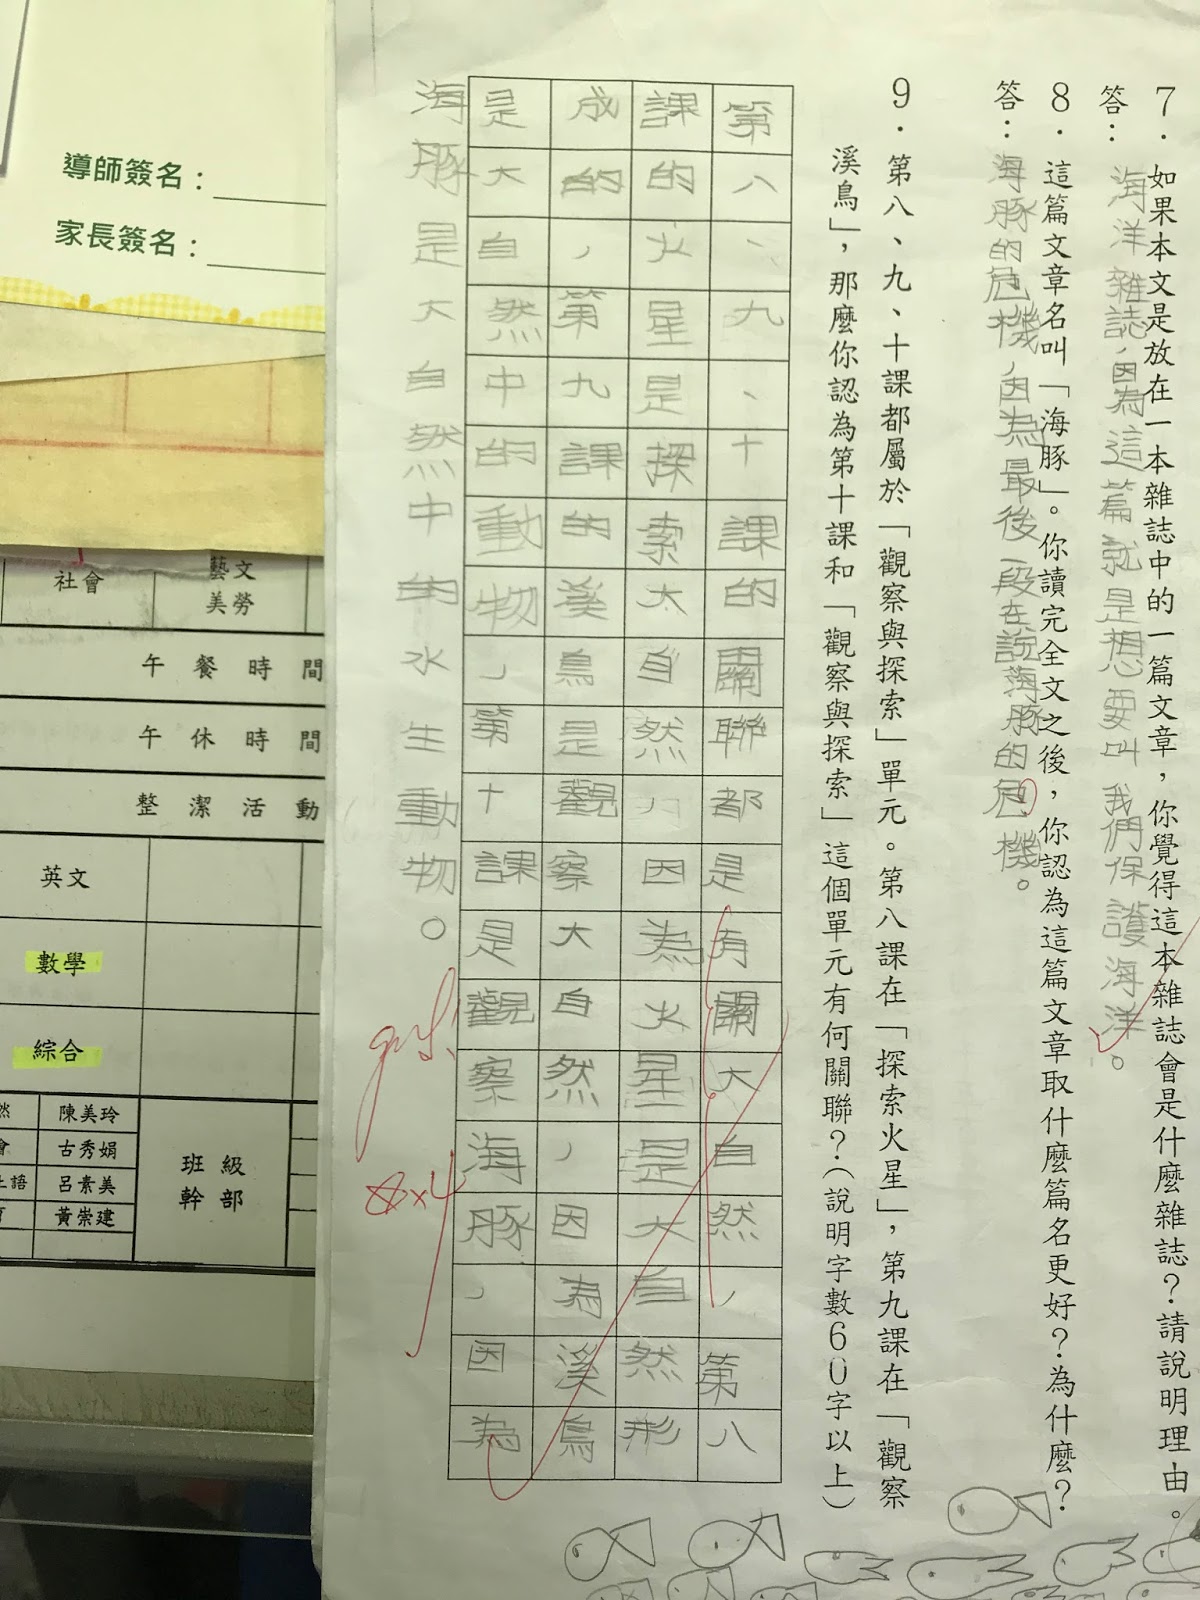 7．如果本文是放在一本雜誌中的一篇文章，你覺得這本雜誌會是什麼雜誌？請說明理由。
答：海洋雜誌，因為這篇就是想要叫我們保護海洋。
8．這篇文章名叫「海豚」。你讀完全文之後，你認為這篇文章取什麼篇名更好？為什麼？
答：海豚的危機，因為最後一段在說海豚的危機。
9．第八、九、十課都屬於「觀察與探索」單元。第八課在「探索火星」，第九課在「觀察
溪鳥」，那麼你認為第十課和「觀察與探索」這個單元有何關聯？（說明字數60字以上）
第八、九、十課的關聯都是有關大自然，第八
課的火星是探索大自然，因為火星是大自然形
成的，第九課的溪鳥是觀察大自然，因為溪鳥
是大自然中的動物，第十課是觀察海豚，因為
海豚是大自然中的水生動物。
8×4
導師簽名：
家長簽名：
社會
藝文
美勞
午餐時間
午休時間
整潔活動
英文
數學
綜合
陳美玲
古秀娟
呂素美
黃崇建
班級
幹部